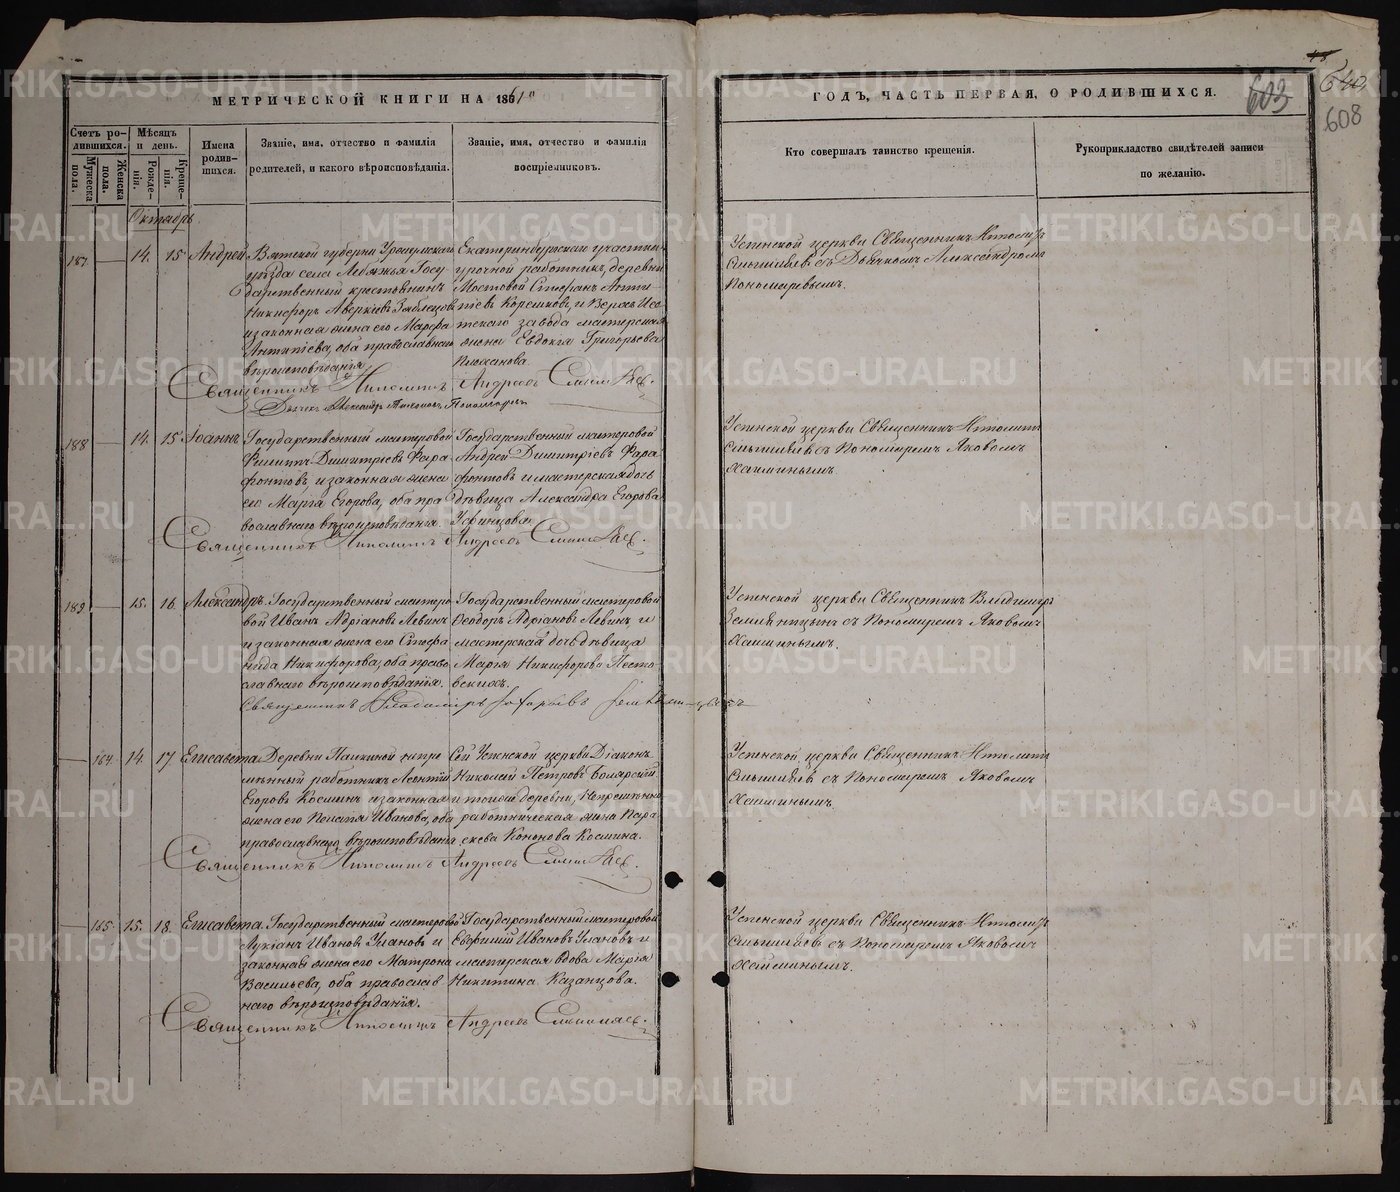 МЕТРИЧЕСКОЙ КНИГИ НА 1861й
ГОДЪ, ЧАСТЬ ПЕРВАЯ, О РОДИВШИХСЯ.
603
608
Счетъ родившихся.
Мужеска пола.
Женска пола.
Мѣсяцъ и день.
Рожденія.
Крещенія.
Имена родившихся.
Званіе, имя, отчество и фамилія
родителей, и какого вѣроисповѣданія.
Званіе, имя, отчество и фамилія
воспріемниковъ.
Кто совершалъ таинство крещенія.
Рукоприкладство свидѣтелей записи
по желанію.
Октябрь
187. 14. 15 Андрей
Вятской губерніи Уржумскаго
уѣзда села Лебяжья Госу
дарственный крестьянинъ
Никифоръ Аверкіевъ
и законная жена его Марфа
Антипіева, оба православнаго
вѣроисповѣданія
Екатеринбургскаго
урочной работникъ, деревни
Мостовой Стефанъ Анти
піевъ Корешковъ, и Верхъ Исе
тскаго завода мастерская
жена Евдокія Григорьева
Плоханова.
Успенской церкви Священникъ Ипполитъ
съ Дьячкомъ Александромъ
Пономаревымъ.
Священникъ Ипполитъ Андреевъ
Дьячекъ Александръ Пономаревъ
188 14. 15 Іоаннъ
Государственный мастеровой
Филиппъ Димитріевъ Фара
фонтовъ, и законная жена
его Марія Егорова, оба пра
вославнаго вѣроисповѣданія
Государственный мастеровой
Андрей Димитріевъ Фара
фонтовъ и мастерская дочь
дѣвица Александра Егорова
Уфинцова.
Успенской церкви Священникъ Ипполитъ
съ Пономаремъ Яковомъ
Священникъ Ипполитъ Андреевъ
189 15. 16 Александръ
Государственный мастеро
вой Иванъ Адріановъ Левинъ
и законная жена его Стефа
нида Никифорова, оба право
славнаго вѣроисповѣданія.
Государственный мастеровой
Ѳеодоръ Адріановъ Левинъ и
мастерская дочь дѣвица
Марія Никифорова Песто
вскихъ.
Успенской церкви Священникъ Владиміръ
Земляницынъ съ Пономаремъ Яковомъ
Священникъ Владиміръ
164 14. 17 Елисавета
Деревни Палкиной непре
мѣнный работникъ Леонтій
Егоровъ Косминъ и законная
жена его Пелагія Иванова, оба
православнаго вѣроисповѣданія
Сей Успенской церкви Діаконъ
Николай Петровъ Боярскій
и тойже деревни, Непремѣнно
работническая жена Пара
скева Кононова Космина.
Успенской церкви Священникъ Ипполитъ
съ Пономаремъ Яковомъ
Священникъ Ипполитъ Андреевъ
165. 15. 18. Елисавета
Государственный мастеровой
Лукіанъ Ивановъ Улановъ и
законная жена его Матрона
Васильева, оба православ
наго вѣроисповѣданія.
Государственный мастеровой
Евфимій Ивановъ Улановъ и
мастерская вдова Марія
Никитина Казанцова.
Успенской церкви Священникъ Ипполитъ
съ Пономаремъ Яковомъ
Священникъ Ипполитъ Андреевъ
METRIKI.GASO-URAL.RU